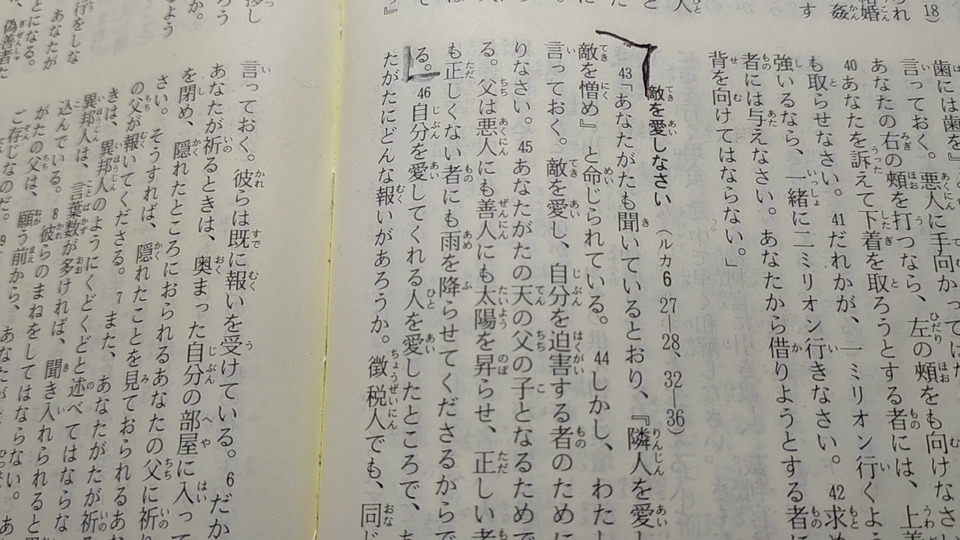 歯には歯を』
言っておく。悪人に手向かっては
あなたの右の頬を打つなら、左の頬をも向けなさ
40あなたを訴えて下着を取ろうとする者には、上
も取らせなさい。41だれかが、一ミリオン行くよう
強いるなら、一緒に二ミリオン行きなさい。42求め
者には与えなさい。あなたから借りようとする者に
背を向けてはならない。」
敵を愛しなさい（ルカ6 27―28、32―36）
43「あなたがたも聞いているとおり、『隣人を愛し
敵を憎め』と命じられている。44しかし、わたし
言っておく。敵を愛し、自分を迫害する者のために
りなさい。45あなたがたの天の父の子となるためで
る。父は悪人にも善人にも太陽を昇らせ、正しい者
も正しくない者にも雨を降らせてくださるからで
る。46自分を愛してくれる人を愛したところで、
たがたにどんな報いがあろうか。徴税人でも、同じ
言っておく。彼らは既に報いを受けている。6だか
あなたが祈るときは、奥まった自分の部屋に入って
を閉め、隠れたところにおられるあなたの父に祈り
さい。そうすれば、隠れたことを見ておられるあな
の父が報いてくださる。7また、あなたがたが祈
きは、異邦人のようにくどくどと述べてはならな
異邦人は、言葉数が多ければ、聞き入れられると
込んでいる。8彼らのまねをしてはならない。あ
がたの父は、願う前から、あなたが
ご存じなのだ。9